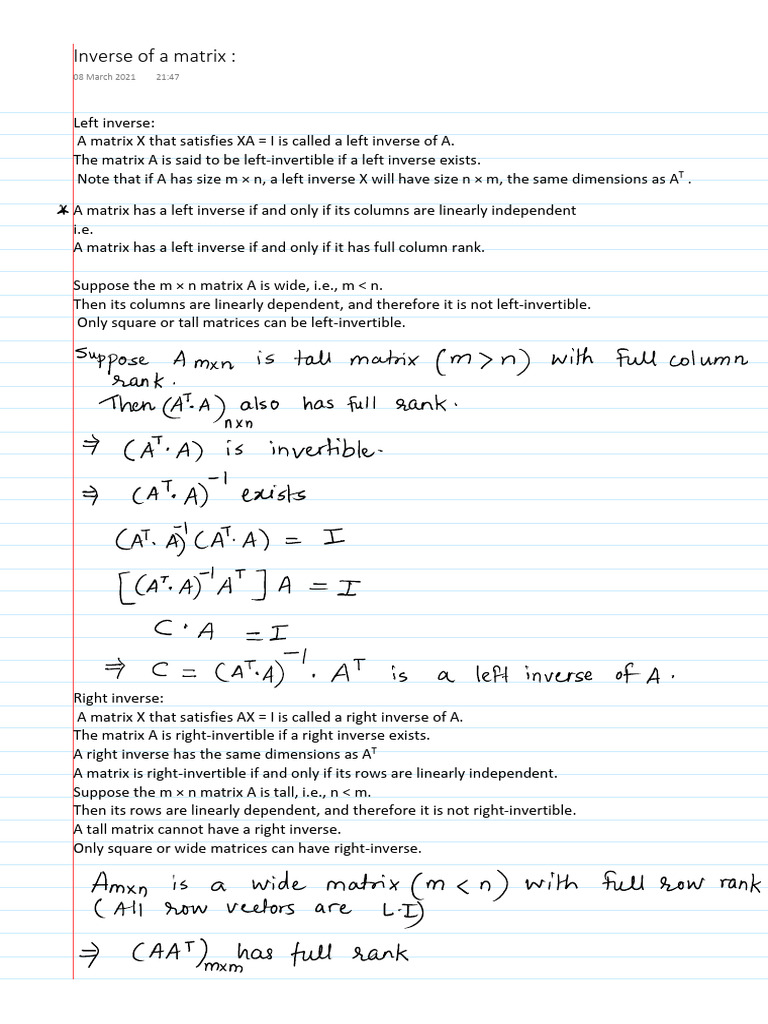 Inverse of a matrix :
08 March 2021 21:47
Left inverse:
A matrix X that satisfies XA = I is called a left inverse of A.
The matrix A is said to be left-invertible if a left inverse exists.
Note that if A has size m × n, a left inverse X will have size n × m, the same dimensions as Aᵀ .
* A matrix has a left inverse if and only if its columns are linearly independent
i.e.
A matrix has a left inverse if and only if it has full column rank.
Suppose the m × n matrix A is wide, i.e., m < n.
Then its columns are linearly dependent, and therefore it is not left-invertible.
Only square or tall matrices can be left-invertible.
Suppose A m×n is tall matrix (m > n) with full column
rank.
Then (Aᵀ·A) n×n also has full rank.
⇒ (Aᵀ·A) is invertible.
⇒ (Aᵀ·A)⁻¹ exists
(Aᵀ·A)⁻¹(Aᵀ·A) = I
[(Aᵀ·A)⁻¹Aᵀ] A = I
C · A = I
⇒ C = (Aᵀ·A)⁻¹ · Aᵀ is a left inverse of A.
Right inverse:
A matrix X that satisfies AX = I is called a right inverse of A.
The matrix A is right-invertible if a right inverse exists.
A right inverse has the same dimensions as Aᵀ
A matrix is right-invertible if and only if its rows are linearly independent.
Suppose the m × n matrix A is tall, i.e., n < m.
Then its rows are linearly dependent, and therefore it is not right-invertible.
A tall matrix cannot have a right inverse.
Only square or wide matrices can have right-inverse.
A m×n is a wide matrix (m < n) with full row rank
(All row vectors are L.I)
⇒ (AAᵀ) m×m has full rank